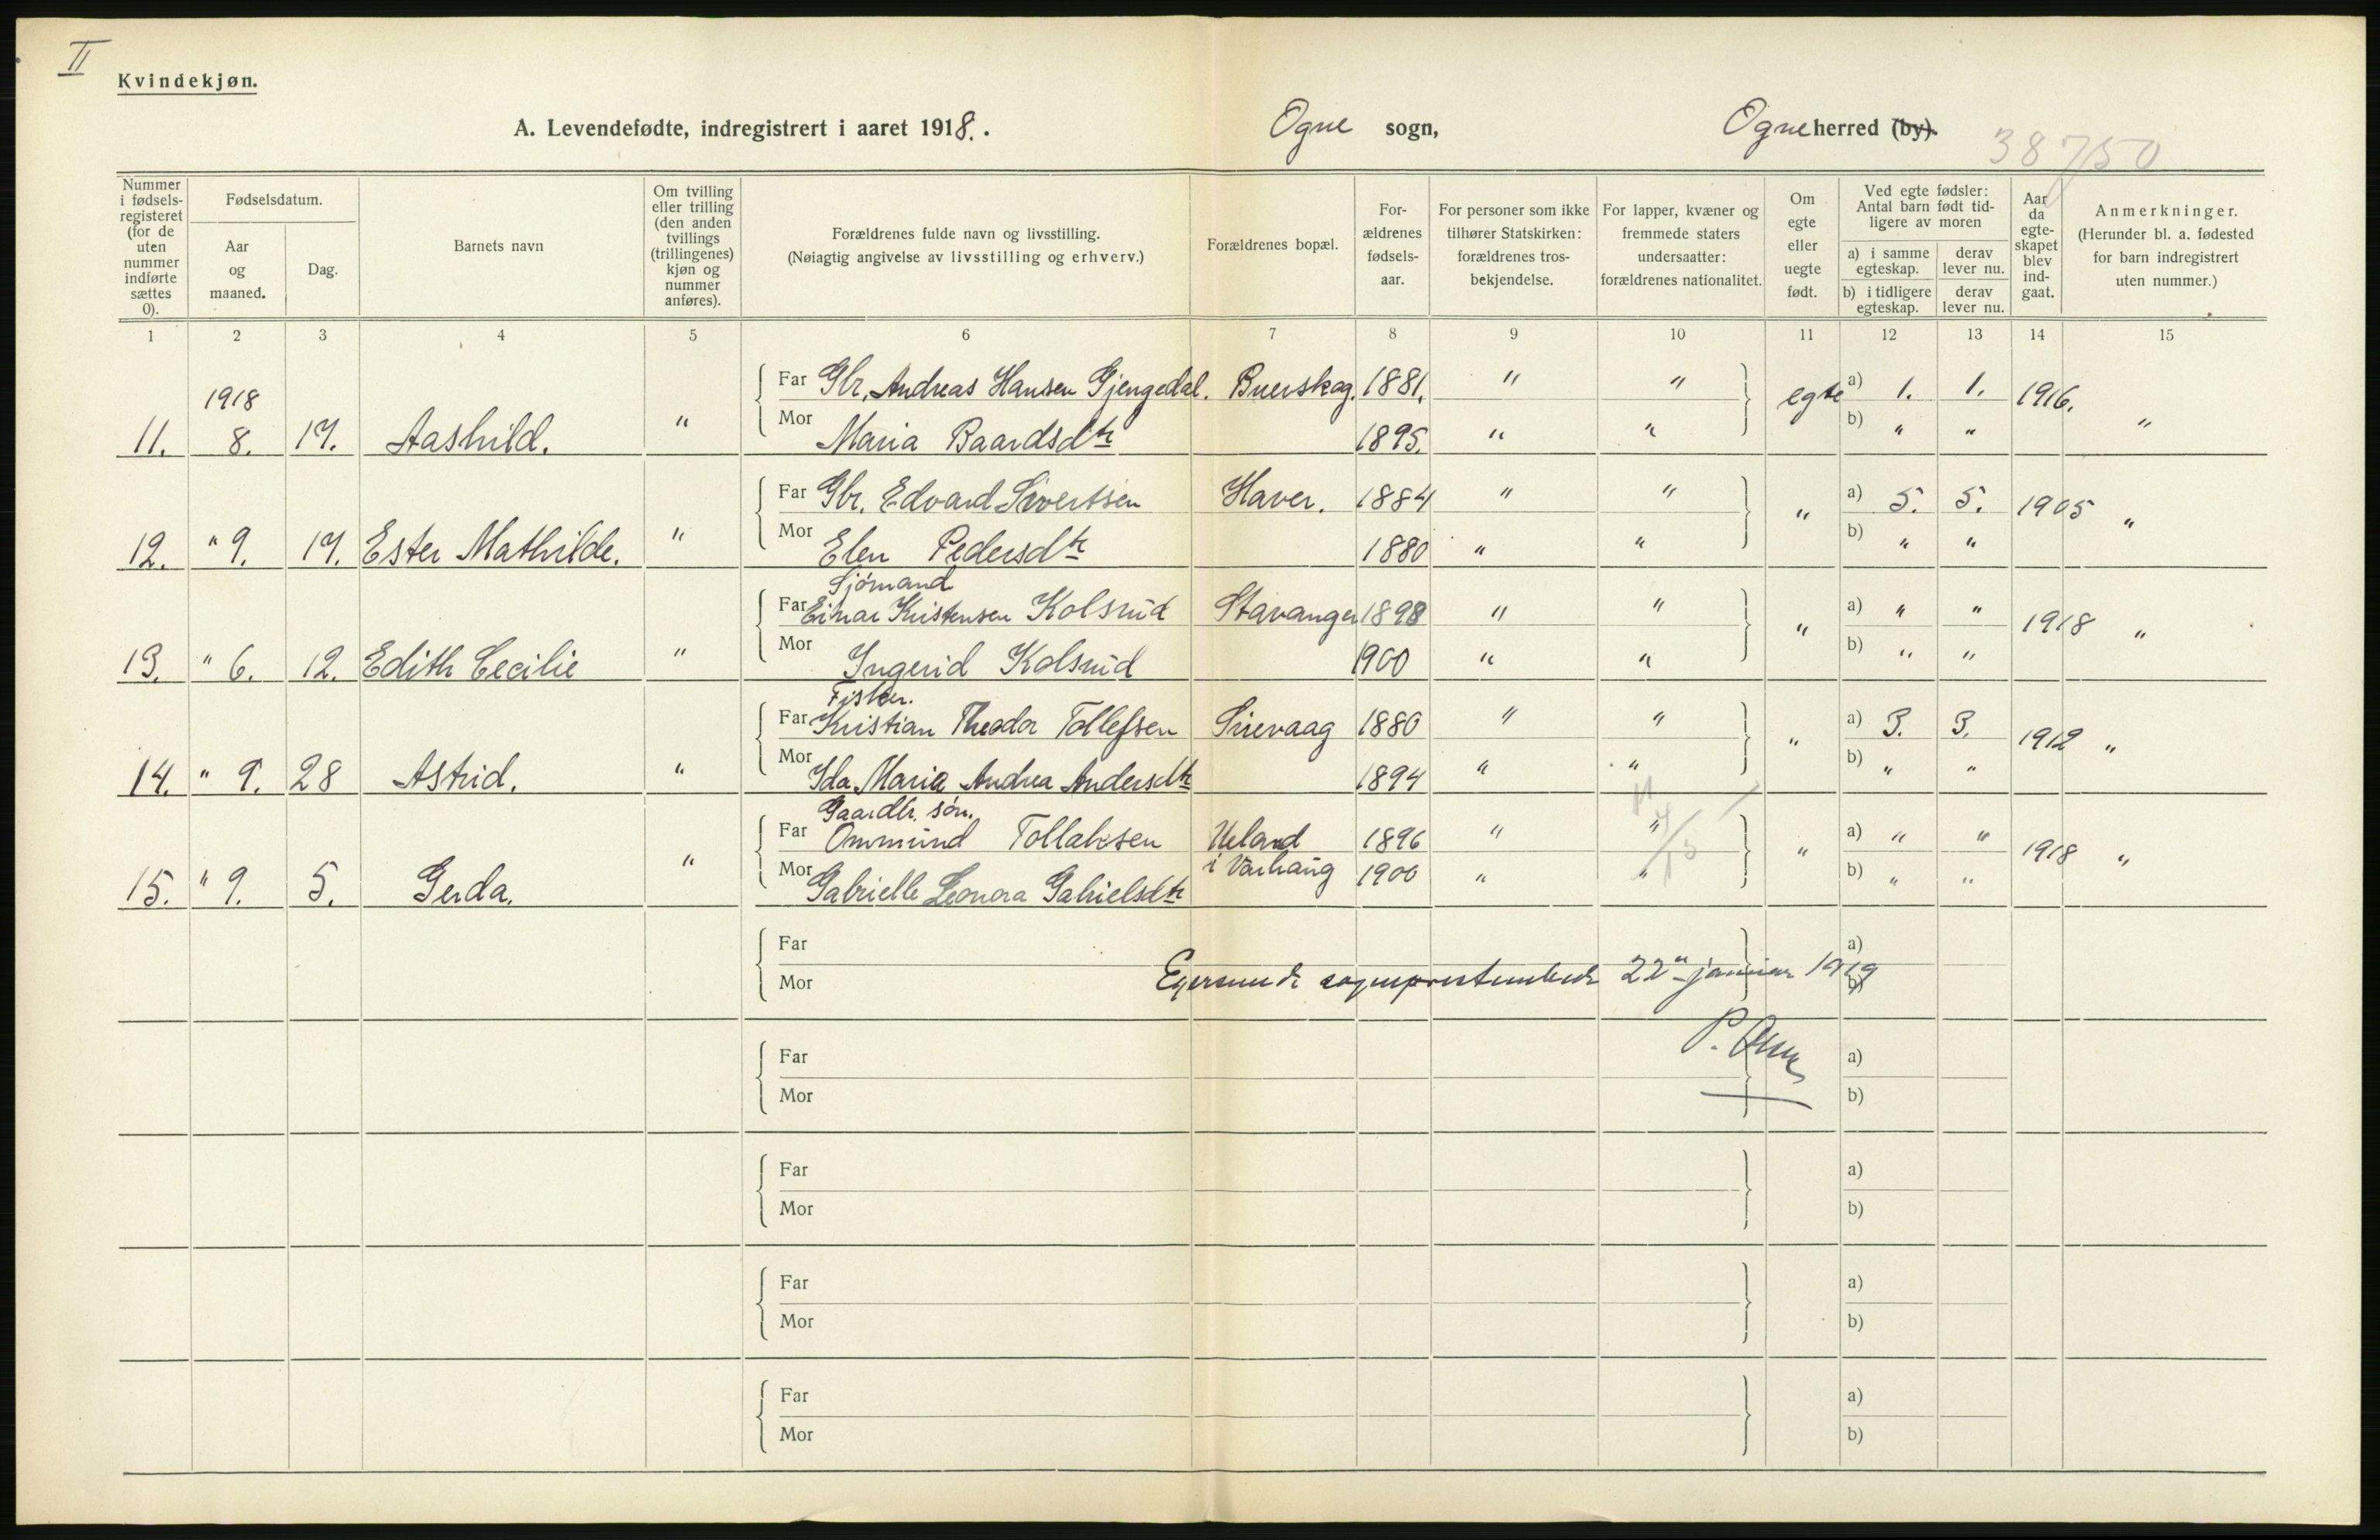 II
Kvindekjøn.
A. Levendefødte, indregistrert i aaret 1918. Ogne sogn, Ogne herred (by).
38750
Nummer i fødsels-registeret (for de uten nummer indførte sættes 0).
Fødselsdatum.
Aar og maaned.
Dag.
Barnets navn
Om tvilling eller trilling (den anden tvillings (trillingenes) kjøn og nummer anføres).
Forældrenes fulde navn og livsstilling.
(Nøiagtig angivelse av livsstilling og erhverv.)
Forældrenes bopæl.
For-ældrenes fødsels-aar.
For personer som ikke tilhører Statskirken: forældrenes tros-bekjendelse.
For lapper, kvæner og fremmede staters undersaatter: forældrenes nationalitet.
Om egte eller uegte født.
Ved egte fødsler: Antal barn født tid-ligere av moren
a) i samme egteskap.
derav lever nu.
b) i tidligere egteskap.
derav lever nu.
Aar da egte-skapet blev ind-gaat.
Anmerkninger.
(Herunder bl. a. fødested for barn indregistrert uten nummer.)
1 2 3 4 5 6 7 8 9 10 11 12 13 14 15
Far Gbr. Andreas Hansen Gjengedal. Buerskog. 1881. " " egte a) 1. 1. 1916.
1918
11. 8. 17. Aashild. " Mor Maria Baardsdtr 1895. " " b) " " "
Far Gbr. Edvard Sivertsen Haver. 1884 " " " a) 5. 5. 1905 "
12. " 9. 17. Ester Mathilde. " Mor Elen Pedersdtr 1880 " " b) " "
Sjømand
Far Einar Kristensen Kolsrud Stavanger 1898 " " " a) " " 1918 "
13. " 6. 12. Edith Cecilie " Mor Ingerid Kolsrud 1900 " " b) " "
Fisker.
Far Kristian Theodor Tollefsen Sirevaag 1880 " " " a) 3. 3. 1912 "
14. " 9. 28 Astrid. " Mor Ida Maria Andrea Andersdtr 1894 " " b) " "
Gaardbr. søn.
Far Ommund Tollaksen Ueland 1896 " " " a) " " 1918 "
i Varhaug
15. " 9. 5. Gerda. " Mor Gabrielle Leonora Gabrielsdtr 1900 " " b) " "
Far a)
Egersunds sogneprestembede 22de januar 1919
Mor b)
P.
Far a)
Mor b)
Far a)
Mor b)
Far a)
Mor b)
Far a)
Mor b)